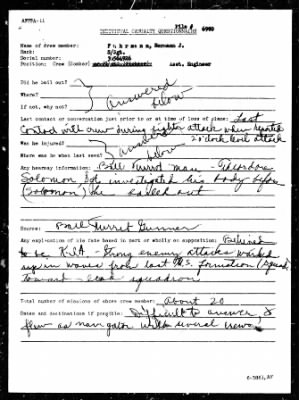 AFPPA-11
File # 6990
INDIVIDUAL CASUALTY QUESTIONNAIRE
Name of crew member: Fuhrmann, Hermann J.
Rank: S/Sgt.
Serial number:
Position: Crew (Bomber) Asst. Engineer
Did he bail out?
Where? answered
If not, why not? below
Last contact or conversation just prior to or at time of loss of plane: Last
contact with crew during fighter attack when reported
2 o'clock level attack
Was he injured? answered
Where was he when last seen? below
Any hearsay information: Ball Turret man - Theodore
Solomon, investigated his body before
(Solomon) he bailed out
Source: Ball Turret Gunner
Any explanation of his fate based in part or wholly on supposition: Believed
to be KIA. Strong enemy attacks worked
up in waves from last U.S. Formation
toward lead squadron
Total number of missions of above crew member: about 20
Dates and destinations if possible: Difficult to answer, I
flew as navigator with several crews